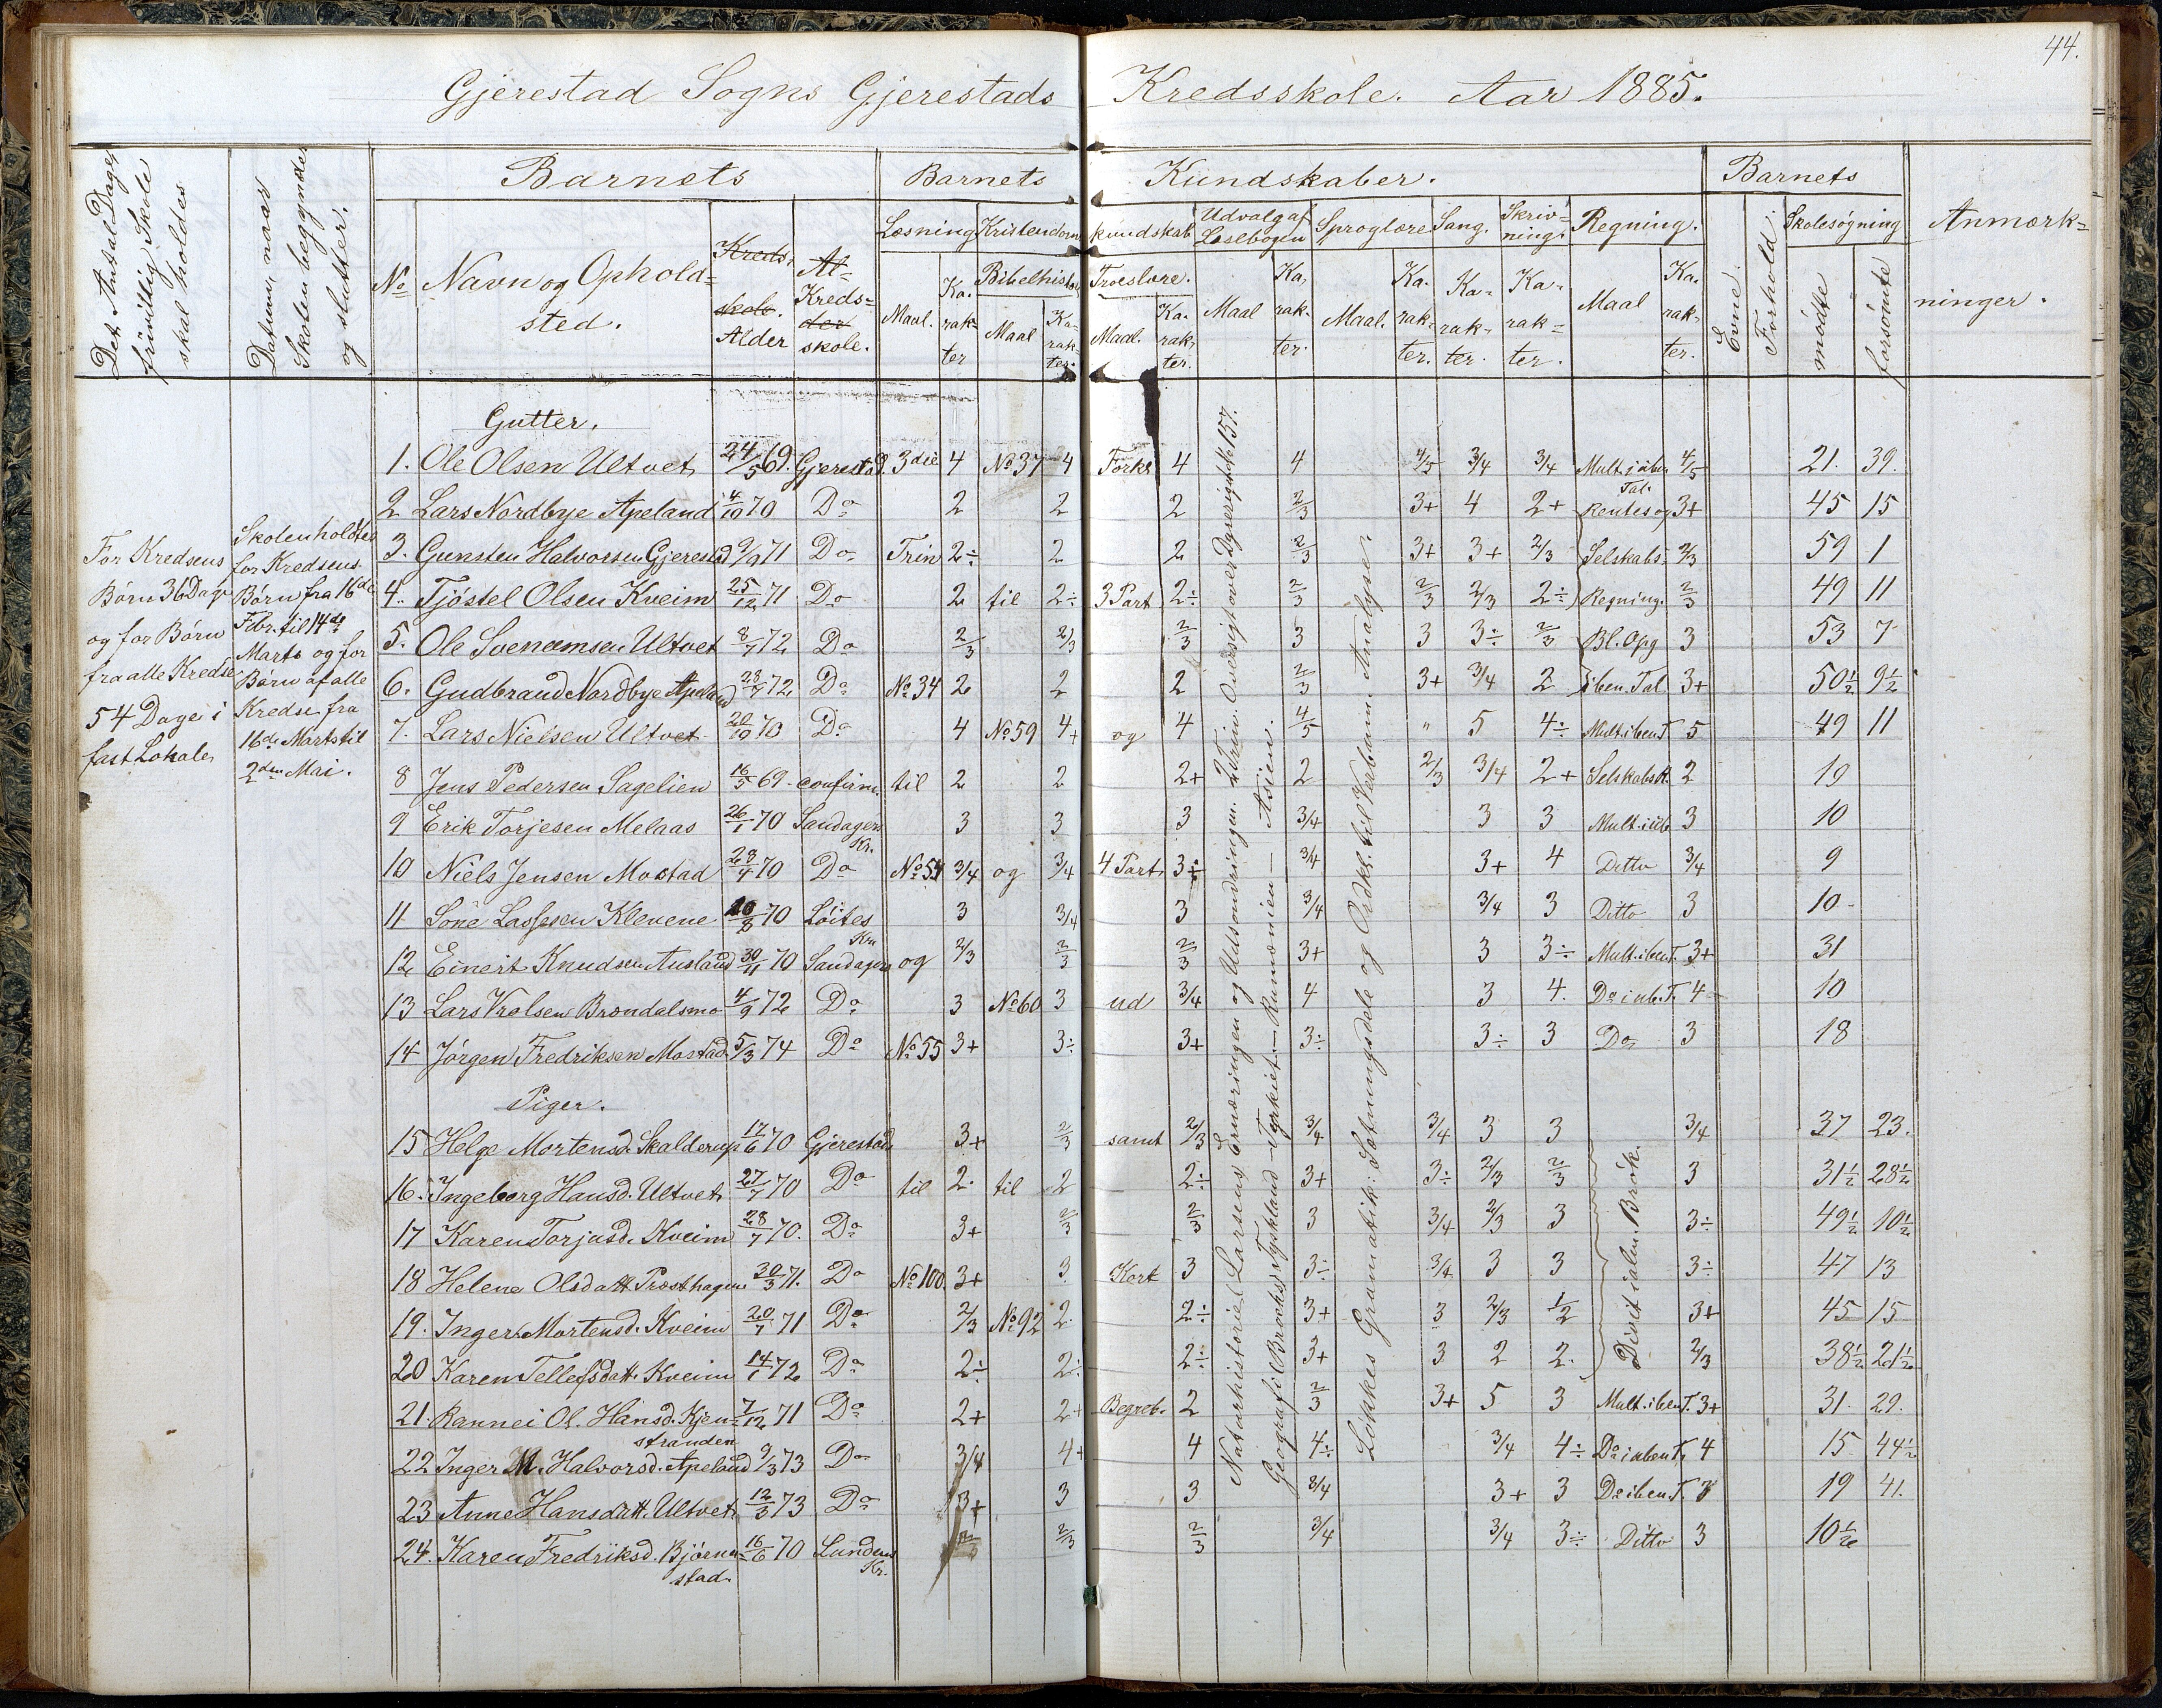 44.
Gjerestad Sogns Gjerestads Kredsskole. Aar 1885.
Det Antal Dage frivillig Skole skal holdes
Datum, naar Skolen begynder og slutter.
Barnets
Barnets Kundskaber.
Barnets
Anmærk=
ninger.
No
Navn og Ophold=
sted.
Kreds=
skole.
Alder
Al-
Kreds=
der
skole.
Læsning
Kristendoms kundskab
Udvalg af
Læsebogen
Sproglære
Sang.
Skriv=
ning.
Regning.
Evne.
Forhold.
Skolesøgning
Maal.
Ka-
rak-
ter
Bibelhistor.
Maal
Ka-
rak-
ter.
Troeslære.
Maal.
Ka-
rak-
ter.
Maal
Ka-
rak-
ter.
Maal.
Ka-
rak-
ter.
Ka-
rak-
ter.
Ka-
rak=
ter.
Maal
Ka-
rak-
ter.
mødte
forsømte
For Kredsens
Børn 36 Dage
og for Børn
fra alle Kredse
54 Dage i
fast Lokale
Skolen holdtes
for Kredsens
Børn fra 16de
Febr. til 14de
Marts og for
Børn af alle
Kredse fra
16de Marts til
2den Mai.
Gutter.
1. Ole Olsen Ultvet 24/5 69. Gjerestad. 3die 4 No 37 4 Forkl 4 4 4/5 3/4 3/4 Mult. i üben 4/5 21. 39.
Tal.
2 Lars Nordbye Apeland 4/10 70 Do 2 2 2 2/3 3+ 4 2+ Rentes og 3+ 45 15
3. Gunsten Halvorsen Gjerestad 9/9 71 Do Trin 2÷ 2 2 2/3 3+ 3+ 2/3 Selskabs- 2/3 59 1
4. Tjöstel Olsen Kveim 25/12 71 Do 2 til 2÷ 3 Part 2÷ 2/3 2/3 2/3 2÷ Regning. 2/3 49 11
5. Ole Svenumsen Ultvet 8/7 72 Do 2/3 2/3 2/3 3 3 3÷ 2/3 Bl. Opg 3 53 7
6. Gudbrand Nordbye Apeland 28/7 72 Do No 34 2 2 2 2/3 3+ 3/4 2 i ben. Tal. 3+ 50½ 9½
7. Lars Nielsen Ultvet 20/10 70 Do 4 No 59 4+ og 4 4/5 " 5 4÷ Mult. i ben T. 5 49 11
8 Jens Pedersen Sagelien 16/5 69 - confirm. til 2 2 2+ 2 2/3 3/4 2+ Selskabs R. 2 19
9 Erik Torjesen Melaas 26/1 70 Sandagers 3 3 3 3/4 3 3 Mult. i üb 3 10
Kr.
10 Niels Jensen Mostad 28/4 70 Do No 54 3/4 og 3/4 4 Part 3÷ 3/4 3+ 4 Ditto 3/4 9
11 Søne Lassesen Klevene 70 Løites 3 3/4 3 3/4 3/4 3 Ditto 3 10
Kr.
12 Einert Knudsen Ausland 30/11 70 Sandagers og 2/3 2/3 2/3 3+ 3 3÷ Mult. i ben T. 3+ 31
13 Lars Brøndalsmo 4/9 72 Do 3 No 60 3 ud 3/4 4 3 4. Do i ub. T. 4 10
14 Jørgen Fredriksen Mostad 5/3 74 Do No 55 3+ 3÷ 3+ 3÷ 3÷ 3 Do 3 18
Piger.
15 Helge Mortensd. Skalderup 17/6 70 Gjerestads 3+ 2/3 samt 2/3 3/4 3/4 3 3 3/4 37 23.
16. Ingeborg Hansd. Ultvet 27/7 70 Do til 2. til 2 2÷ 3+ 3÷ 2/3 2/3 3 31½ 28½
17 Karen Torjusd. Kveim 28/7 70. Do 3+ 2/3 2/3 3 3/4 2/3 3 3÷ 49½ 10½
18 Helene Olsdatt. Præsthagen 30/3 71. Do No 100. 3+ 3 Kort 3 3÷ 3/4 3 3 3÷ 47 13
19. Inger Mortensd. Kveim 20/7 71 Do 2/3 No 92 2. 2÷ 3+ 3 2/3 1/2 3+ 45 15
20 Karen Tellefsdatt. Kveim 14/1 72 Do 2÷ 2÷ 2÷ 3+ 3 2 2. 2/3 38½ 21½
21. Rannei Ol. Hansd. Kjen= 7/12 71 Do 2+ 2+ Begreb. 2 2/3 3+ 5 3 Mult. i ben T. 3+ 31. 29.
stranden
22 Inger M. Halvorsd. Apeland 9/3 73 Do 3/4 4+ 4 4÷ 3/4 4÷ Do i uben T. 4 15 44½
23 Anne Hansdatt. Ultvet 12/3 73 Do 3+ 3 3 3/4 3+ 3 Do i ben T. 3 19 41.
24. Karen Fredriksd. Bjöenn= 16/6 70 Lundens 2/3 2/3 3/4 3/4 3÷ Ditto 3 10½
stad. Kr.
Naturhistorie (Larsens) Ernæringen og Udsondringen. 2 Trin. Oversigt over Dyreriget No 157.
Geografi (Brochs) Tyskland - Tyrkiet - Rumænien - Asien.
Løkkes Grammatik: Sætningsdele og Ordkl. til Verbum. Analyse.
Divis. i alm. Brök.